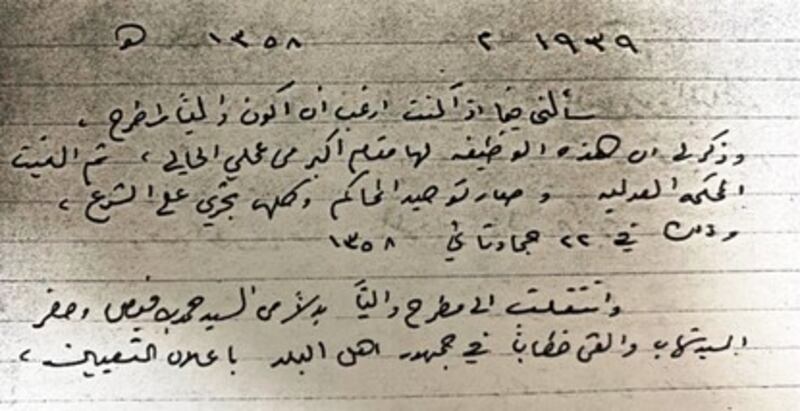 ١٩٣٩ م ١٣٥٨ هـ
سألني فيما اذا كنت ارغب ان أكون والياً بمطرح،
وذكر لي ان هذه الوظيفه لها مقام اكبر من عملي الحالي، ثم الغيت
المحكمه العدليه وصار توحيد المحاكم وكلها تجري على الشرع،
وذلك في ٢٢ جمادثاني ١٣٥٨
وانتقلت الى مطرح والياً بدلاً من السيد حمد بن فيصل وحضر
السيد شهاب والقى خطاباً في جمهور اهل البلد باعلان التعيين،